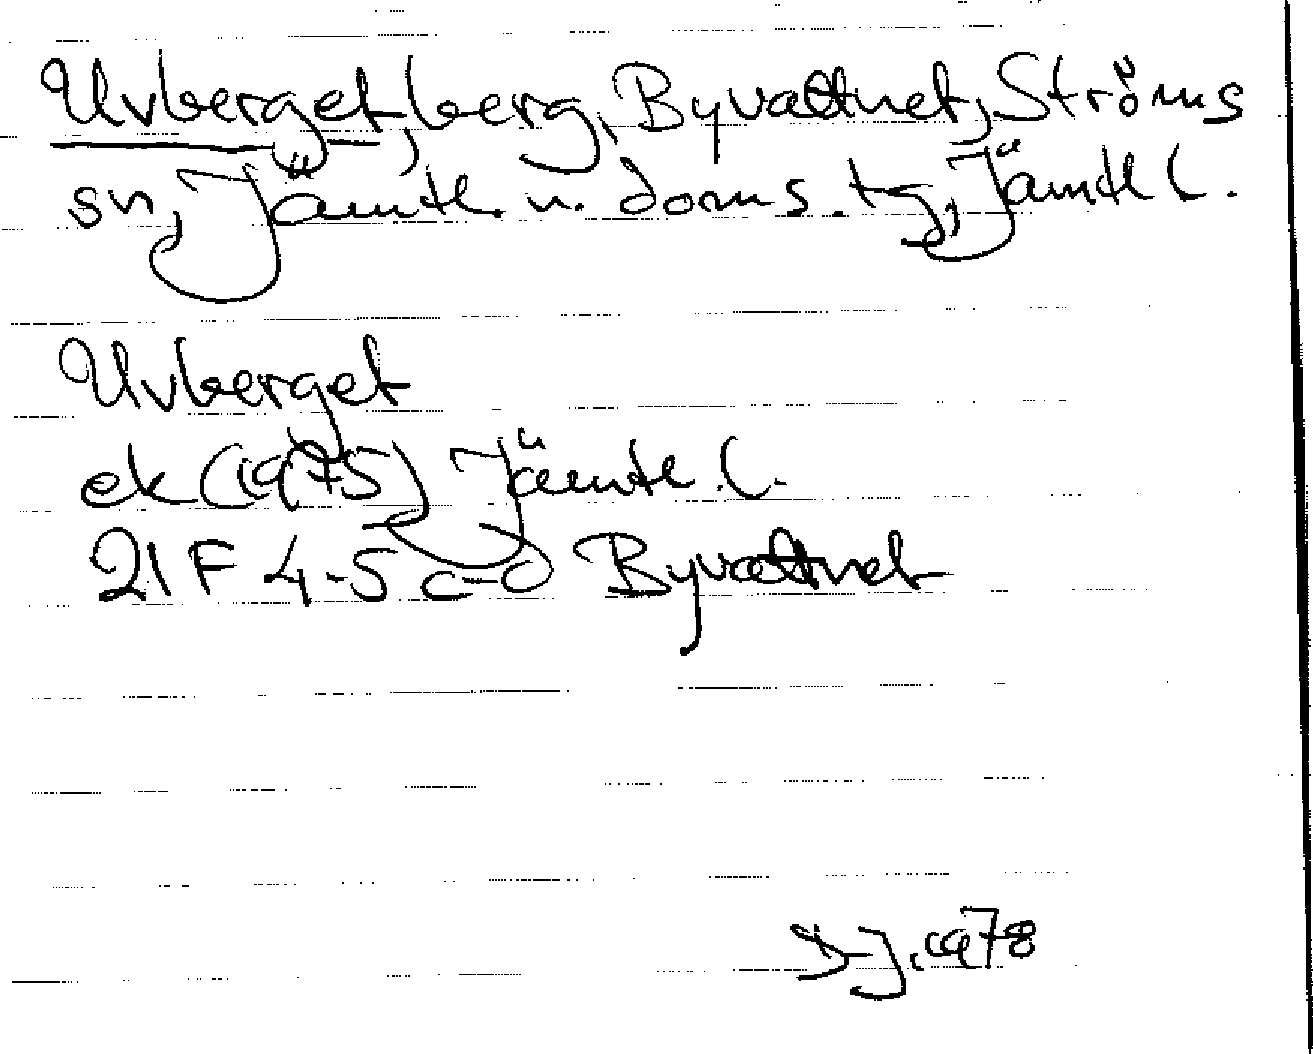 Uvberget, berg, Byvattnet, Ströms
sn, Jämtl. n. doms. tg, Jämtl l.
Uvberget
ek (1975) Jämtl. l.
21 F 4-5 c-d Byvattnet
1978